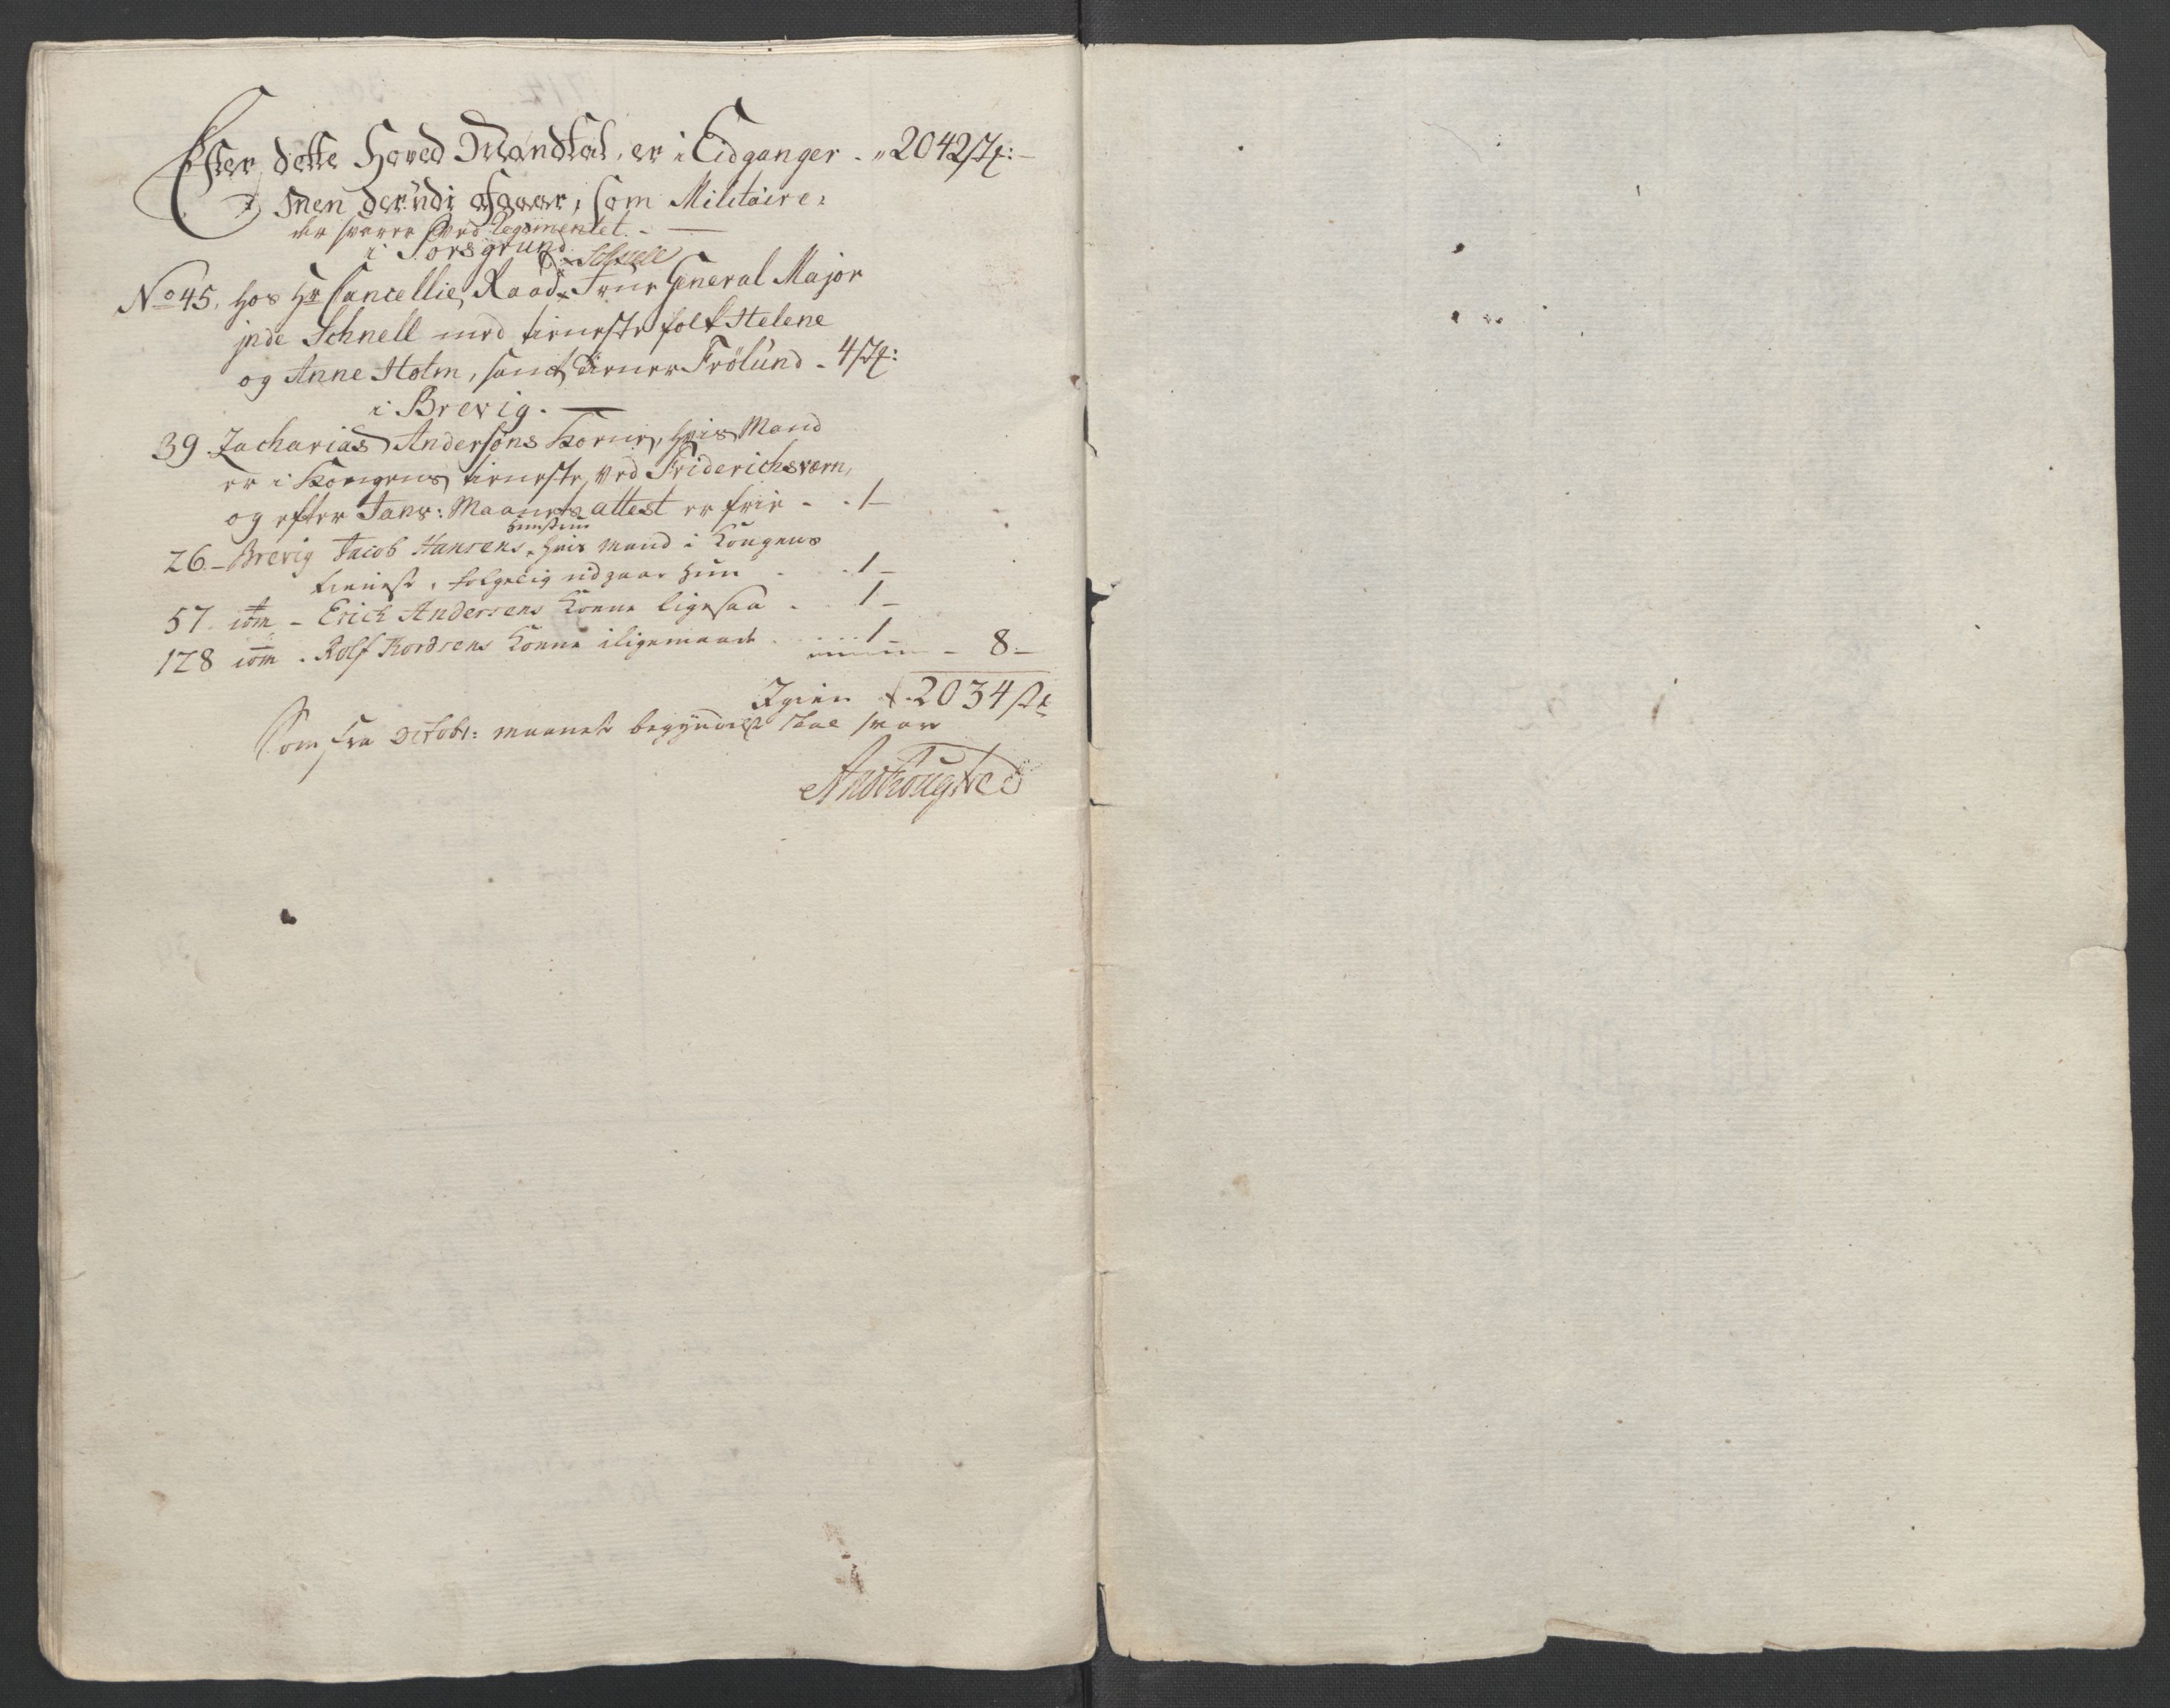 Efter dette Hoved Mandtal, er i Eidganger - " 2042 Stk:
Men derudi afgaaer, som Militaire,
der svarer ved Regimentet. -
i Porsgrund
Schnell
No 45. hos Hr Cancellie Raad Frue General Major
inde Schnell med tieneste folk Helene
og Anne Holm, samt tiener Frölund - 4 Stk:
i Brevig. -
39 Zacharias Andersøns Kone, hvis Mand
er i Kongens tieneste, ved Friderichsværn,
og efter Maanets attest er frie - - 1 -
26 - Brevig Jacob Hansens, hvis mand i Kongens
tieneste, følgelig udgaar hun - - 1 -
57 itm - Erich Andersens Konne ligesaa - - 1 -
128 itm - Rolf Kordsens Konne iligemaade - 1 - - 8 -
Igien 2034 Stk
Som fra Octobr: maanets begyndelse skal svare